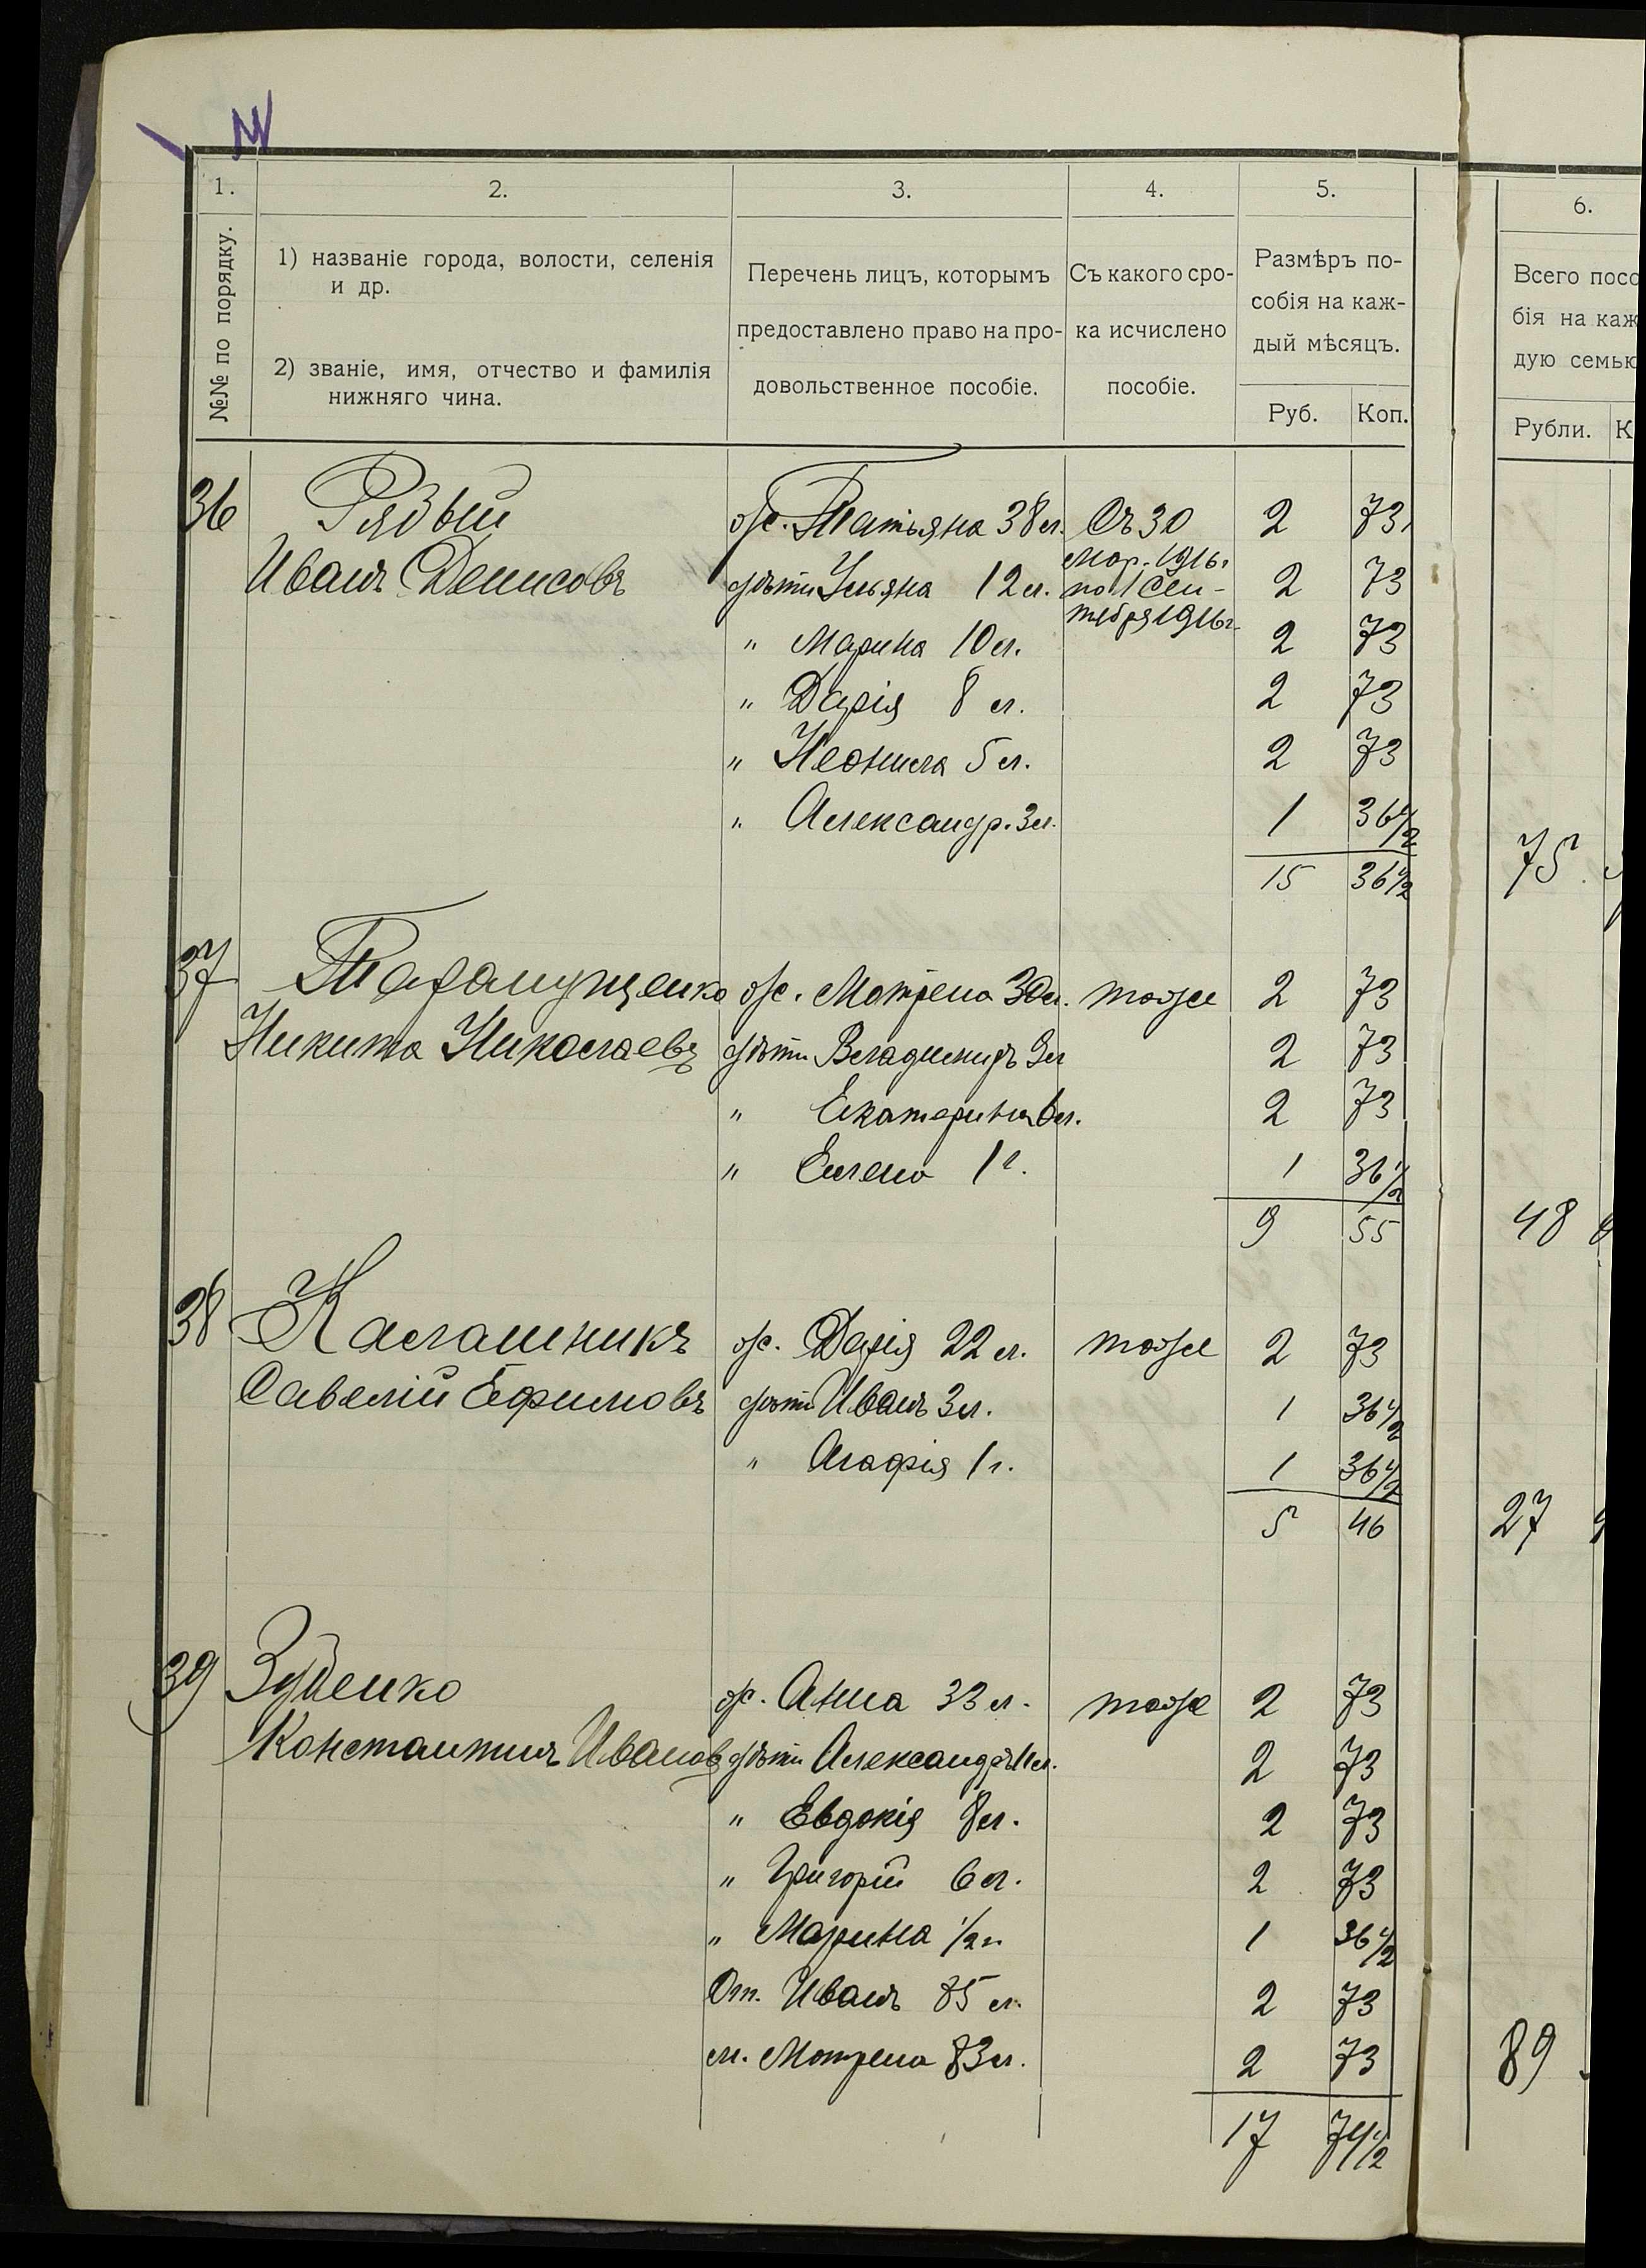 1.
2.
3.
4.
5.
6.
№№ по порядку.
1) названіе города, волости, селенія
и др.
2) званіе, имя, отчество и фамилія
нижняго чина.
Перечень лицъ, которымъ
предоставлено право на про-
довольственное пособіе.
Съ какого сро-
ка исчислено
пособіе.
Размѣръ по-
собія на каж-
дый мѣсяцъ.
Руб. Коп.
Всего посо
бія на каж
дую семью
Рубли. К
36 Рядый ж. Татьяна 38 л. Съ 30 2 73
мар. 1916 г.
Иванъ Денисовъ дѣти Ульяна 12 л. по 1 Сен- 2 73
тября 1916 г.
" Марина 10 л. 2 73
" Дарія 8 л. 2 73
" Неонила 5 л. 2 73
" Александр. 3 л. 1 36 1/2
15 36 1/2 75
37 ж. Мотрена 30 л. тоже 2 73
Никита Николаевъ дѣти Владимиръ 9 л 2 73
" Екатерина 6 л. 2 73
" Елена 1 г. 1 36 1/2
9 55 48
38 Калашникъ ж. Дарія 22 л. тоже 2 73
Савелій Ефимовъ дѣти Иванъ 3 л. 1 36 1/2
" Агафія 1 г. 1 36 1/2
5 46 27
39 Зубенко ж. Анна 33 л. тоже 2 73
Константинъ Иванов дѣти Александръ 11 л. 2 73
" Евдокія 8 л. 2 73
" Григорій 6 л. 2 73
" Марина 1/2 г. 1 36 1/2
От. Иванъ 85 л. 2 73
м. Мотрена 83 л. 2 73 89
17 74 1/2